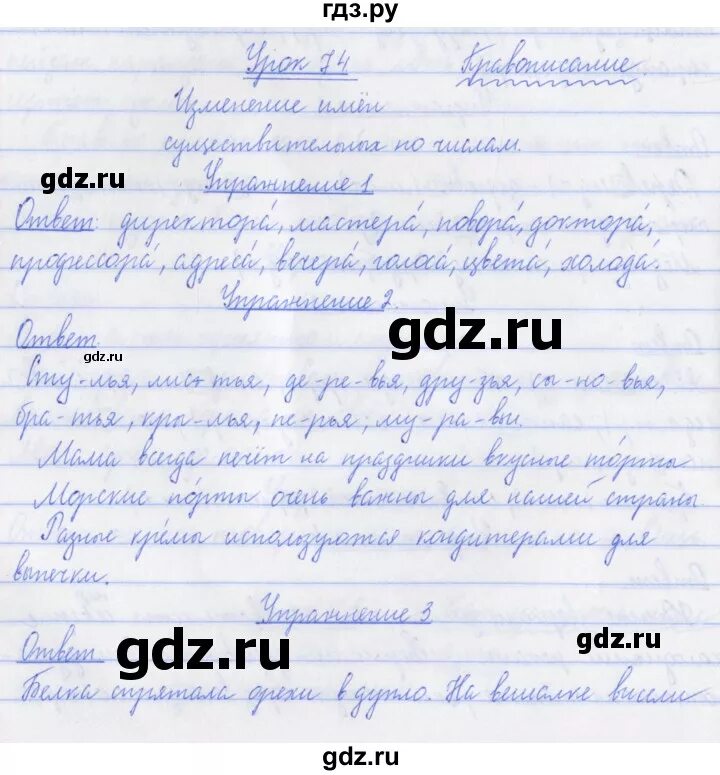 гдз.ру
Урок 74 Правописание.
Изменение имён
существительных по числам.
gdz.ru
Упражнение 1
Ответ: директора́, мастера́, повора́, доктора́,
профессора́, адреса́, вечера́, голоса́, цвета́, холода́.
Упражнение 2.
gdz.ru
Ответ.
gdz.ru
Сту-лья, лис-тья, де-ре-вья, дру-зья, сы-но-вья,
бра-тья, кры-лья, пе-рья, му-ра-вьи.
Мама всегда печёт на праздники вкусные то́рты
Морские по́рты очень важны для нашей страны
Разные кре́мы используются кондитерами для
выпечки.
Упражнение 3
gdz.ru
gdz.ru
Ответ.
Белка спрятала орехи в дупло. На вешалке висели
gdz.ru